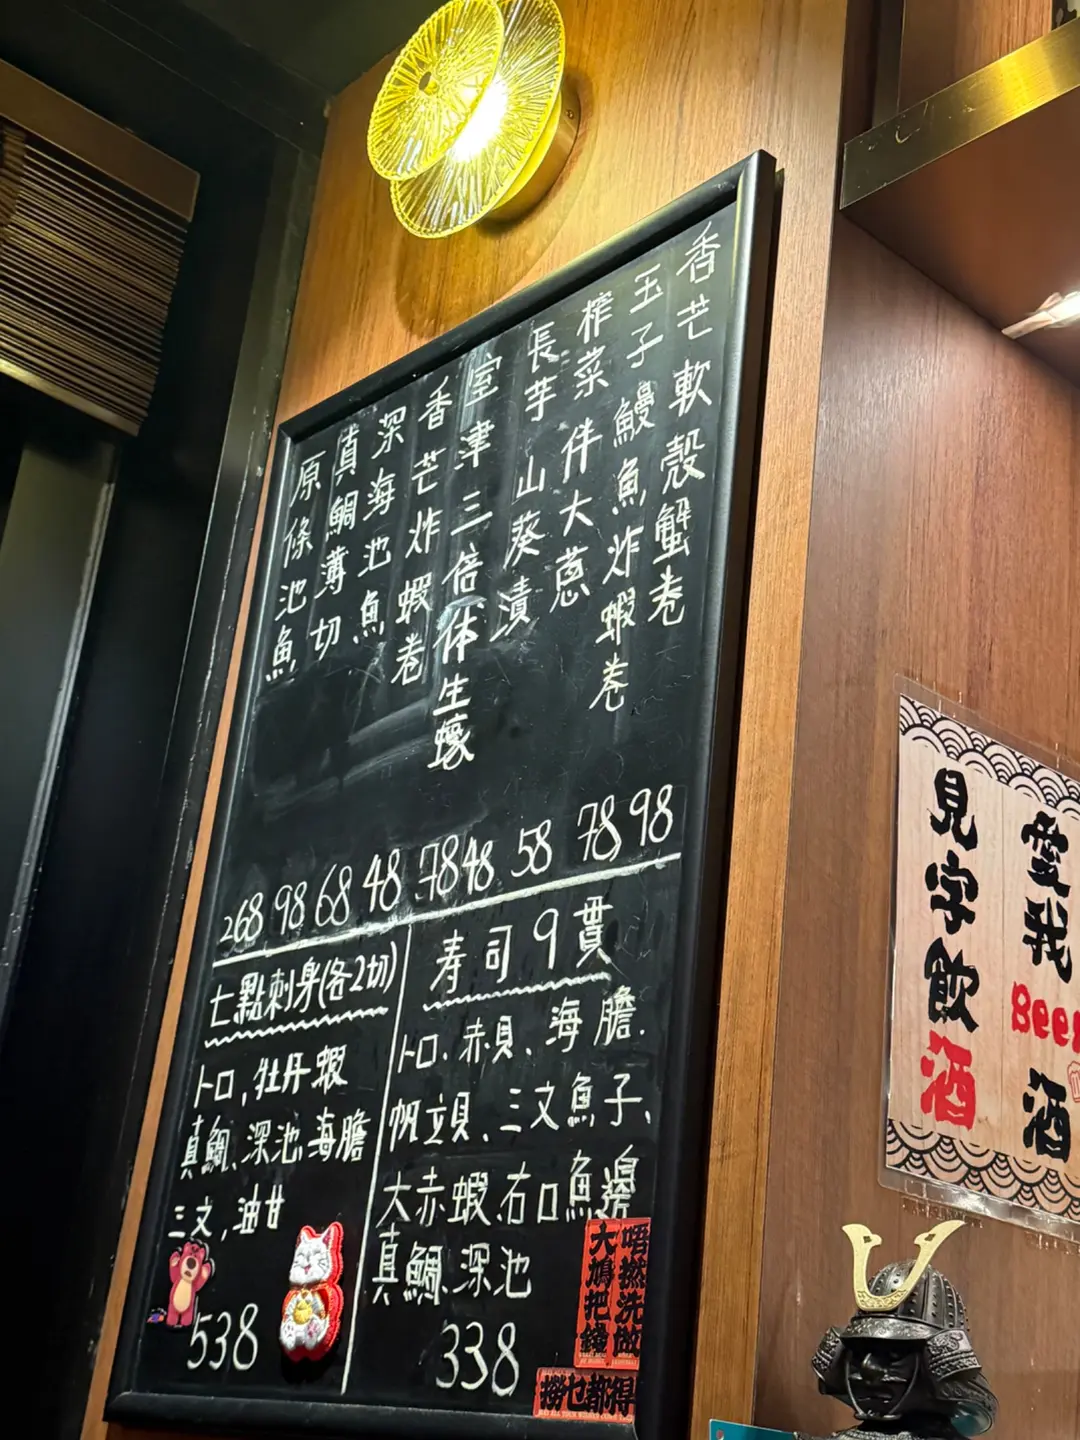 香芒軟殼蟹卷 98
玉子鰻魚炸蝦卷 78
榨菜伴大葱 58
長芋山葵漬 48
室津三倍体生蠔 78
香芒炸蝦卷 48
深海池魚 68
真鯛薄切 98
原條池魚 268
七點刺身(各2切)
トロ,牡丹蝦
真鯛、深池、海膽
三文,油甘
538
寿司9貫
トロ、赤貝、海膽、
帆立貝、三文魚子、
大赤蝦、右口魚邊
真鯛、深池
338
唔撚洗做
大鳩把錢
撈乜都得
愛我
Beer
酒
見字飲酒